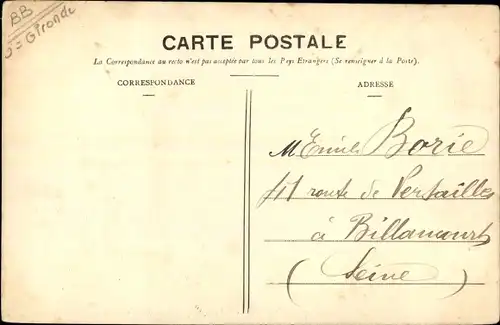 BB
D=Gironde
CARTE POSTALE
La Correspondance au recto n'est pas acceptée par tous les Pays Etrangers (Se renseigner à la Poste).
CORRESPONDANCE
ADRESSE
M. Emile Borie
route de Versailles
à Billancourt
(Seine)